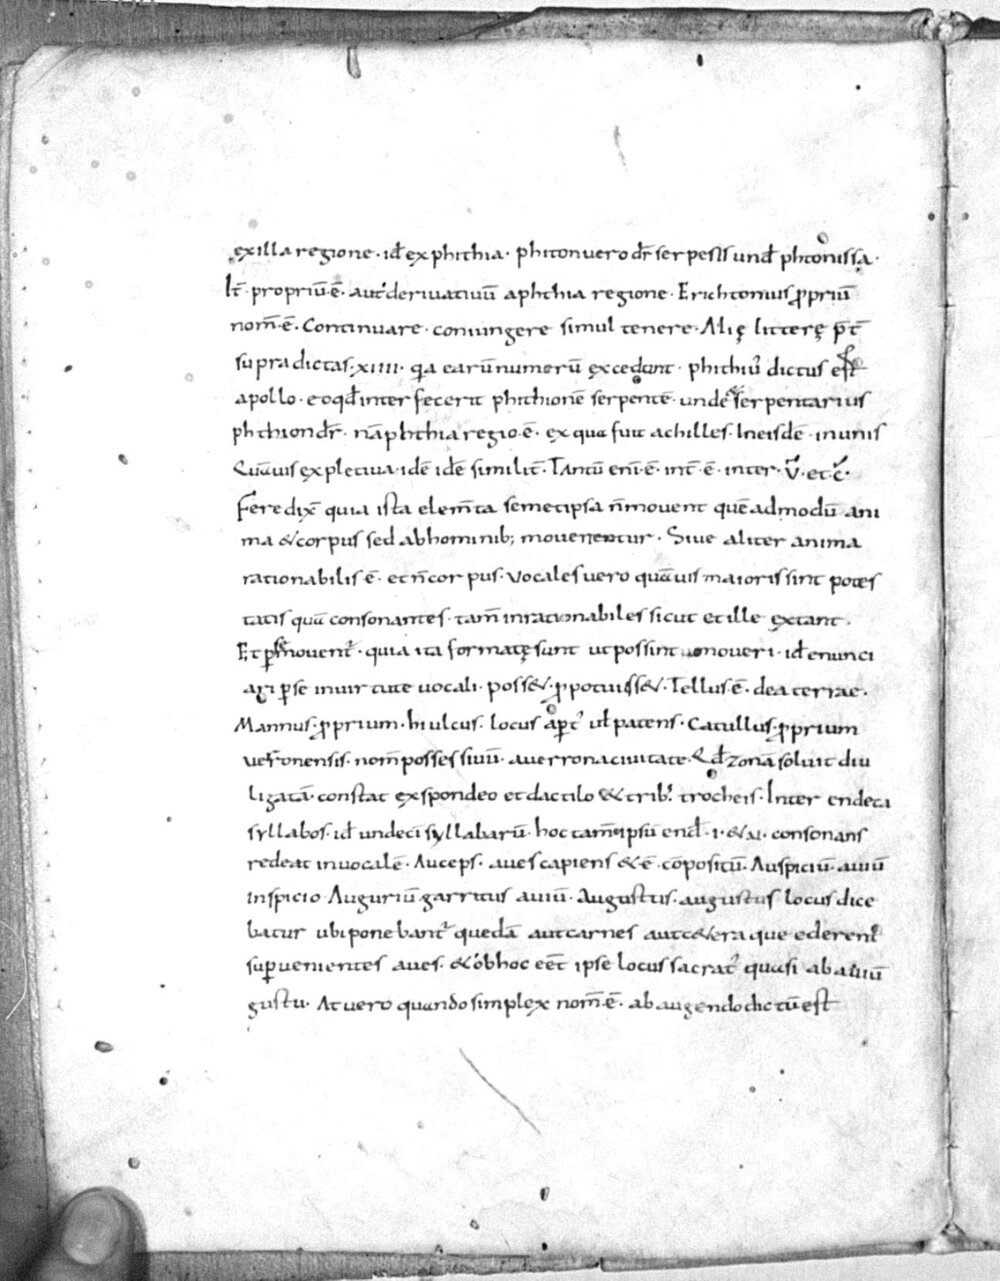 exilla regione · id̄ ex phithia · phiton uero dr̄ serpesis und̄ phtonissa ·
It̄ · propriū ē · aut deriuatiuū a phthia regione · Erichtonius ꝓpriū
nom̄ · ē · Continuare · coniungere simul tenere · Alię litterę p̄t̄
supradictas · xiiii · q̣a earū numerū excedunt · phithiu᷒ dictus est
apollo · eo qd̄ interfecerit phithionē serpentē · unde serpentarius
phthion dr̄ · nā phthia regio · ē · ex qua fuit achilles · In eisdē · in unis
Quāuis expletiua · idē idē similit̄ · Tantū eni ē · int̄ · ē · inter · v̄ · et · c̄ ·
Fere dix̄ quia ista elem̄ta semetipsa n̄ mouent quē admodū ani
ma & corpus sed ab hominib; mouenentur · Siue aliter anima
rationabilis ē · et n̄ corpus · Vocales uero quāuis maioris sint potes
tatis quā consonantes · tam̄ inrationabiles sicut et ille extant ·
Et ꝑ se mouent᷑ · quia ita formatę sunt ut possint moueri · id̄ enunci
ari ꝑ se in uirtute uocali · poss& · ꝓ potuiss& · Tellus · ē · dea terrae ·
Mannus · ꝓprium · hiulcus · locus aꝑt᷑ ul̄ patens · Catullus · ꝓprium
ueronensis · nom̄ possessiuū · a uerrona ciuitate · Qd̄ zonā soluit diu
ligatā · constat ex spondeo et dactilo & trib᷒ trocheis · Inter endeca
syllabos · id̄ undeci syllabarū · hoc tam̄ ipsū end̄ · i · & u · consonans
redeat in uocalē · Auceps · aues capiens & ē · cōpositū · Auspiciū · auiū
inspicio · Auguriū · garritus auiū · Augustus · augustus locus dice
batur ubi ponebant᷑ quedā aut carnes aut c&era que ederent᷑
suꝑuenientes aues · & ob hoc eēt ipse locus sacrat᷒ quasi ab auiū
gustu · At uero quando simplex nom̄ · ē · ab augendo dictū est